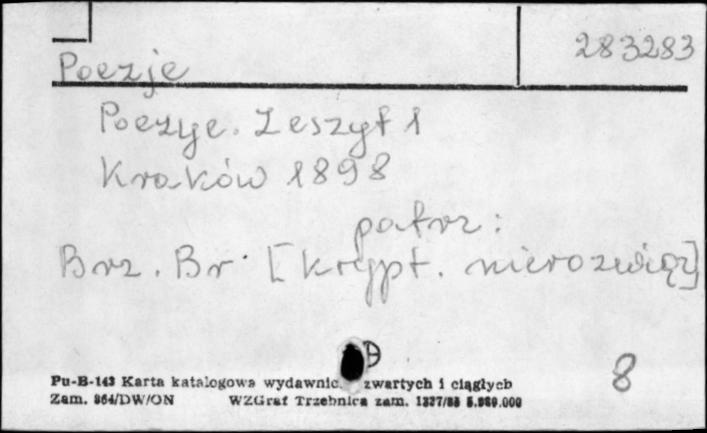 283283
Poezje
Poezye. Zeszyt 1
Kraków 1898
patrz:
Brz. Br. [krypt. nierozwiąz]
Pu-B-143 Karta katalogowa wydawnic zwartych i ciągłych
Zam. 864/DW/ON WZGraf Trzebnica zam. 1327/88 5.980.000
8